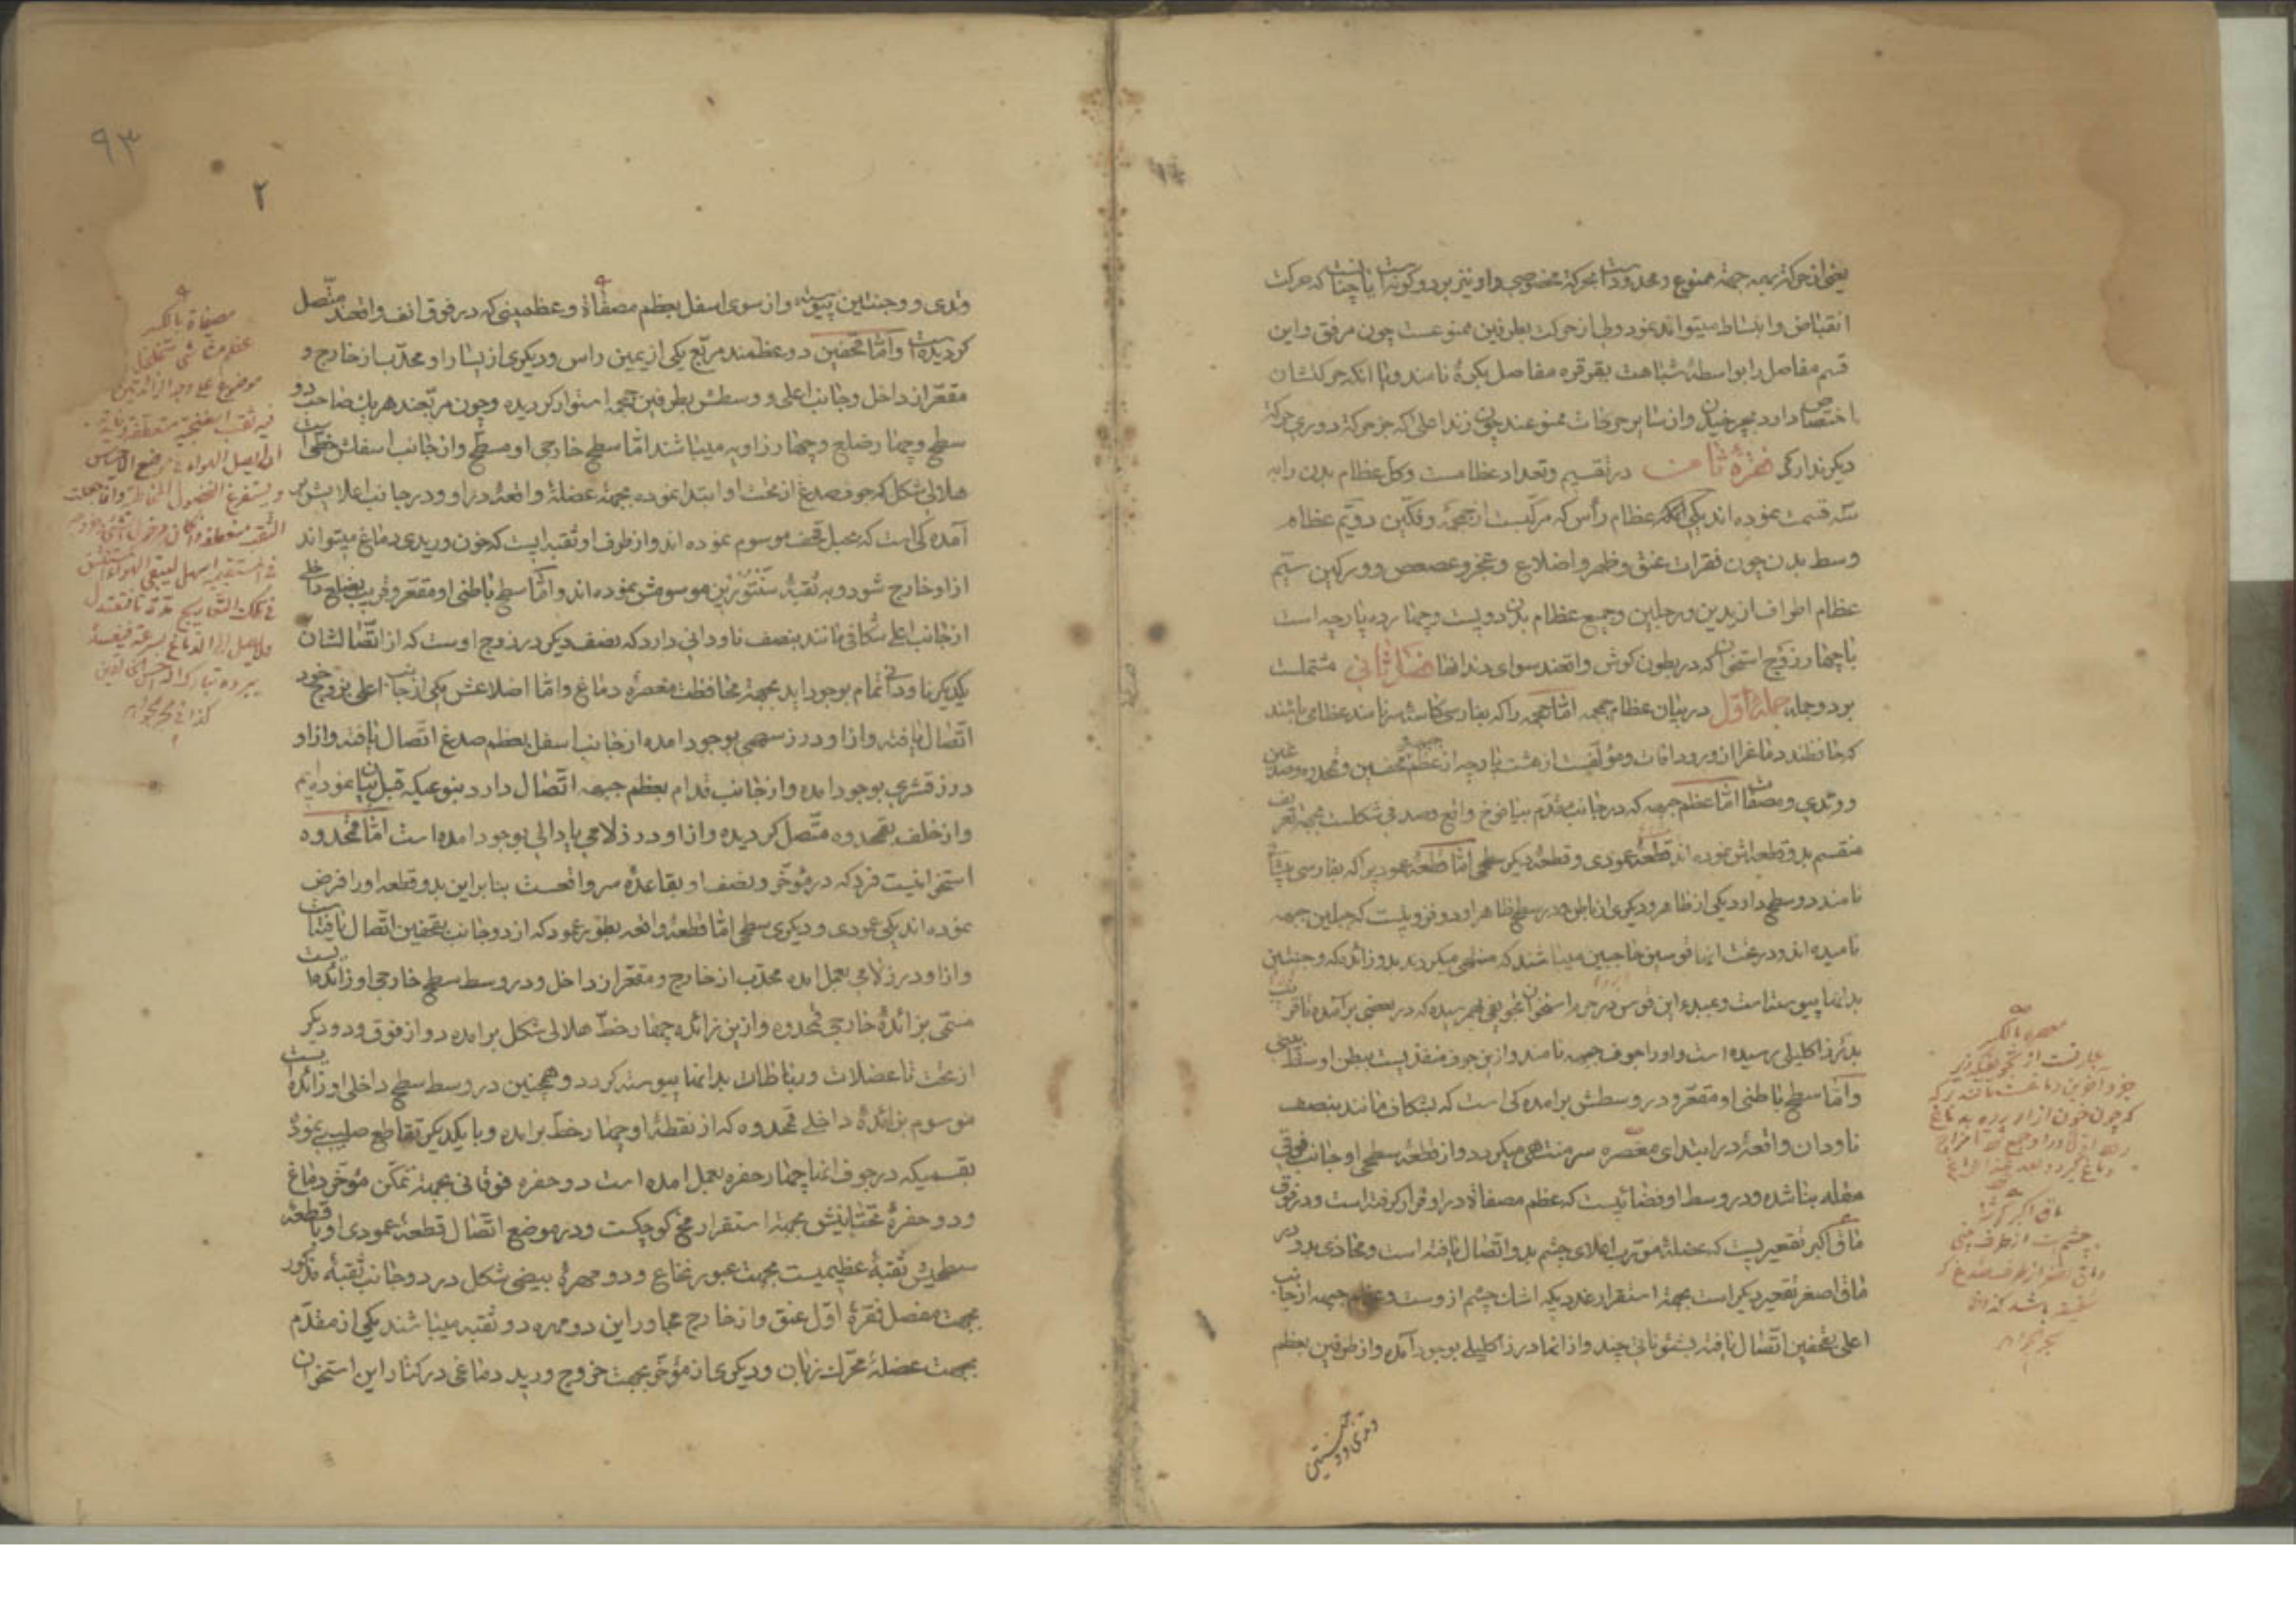 یعنی از حرکة بهمه جهة ممنوع و محدود است بحرکة مخصوصی و او نیز بر دو کونه است یا چنانست که حرکت
انقباض و انبساط میتواند نمود ولی از حرکت بطرفین ممنوعست چون مرفق و این
قسم مفاصل را بواسطهٔ شباهت بقرقره مفاصل بکرهٔ نامند و یا انکه حرکتشان
اختصاص دارد بچرخیدن و از سایر حرکات ممنوعند چون زند اعلی که جز حرکة دوری حرکة
دیکر ندارد فقرهٔ ثامن در تقسیم و تعداد عظامست و کل عظام بدن را به
سه قسمت نموده اند یکی عظام رأس که مرکبست از جمجمه و فکّین دویّم عظام
وسط بدن چون فقرات عنق و ظهر و اضلاع و عجز و عصعص و ورکین سیّم
عظام اطراف از یدین و رجلین و جمیع عظام بدن دویست و چهارده پارچه است
با چهار زوج استخوان که در بطون کوش واقعند سوای دندانها فصل ثانی مشتملست
بر دو جمله جملهٔ اوّل در بیان عظام جمجمه امّا جمجمه را که بفارسی کاسهٔ سر نامند عظامی باشند
که حافظند دماغ را از ورود افات و مؤلّفست از هشت پارچه از عظم جبهه و قحفین و قمحدوه و صدغین
و وتدی و مصفاة امّا عظم جبهه که در جانب مقدّم بیافوخ واقع و صدفی شکلست بجهة تعریف
منقسم بدو قطعه اش نموده اند قطعهٔ عمودی و قطعهٔ دیکر سطحی امّا قطعهٔ عمودیرا که بفارسی پیشانی
نامند دو سطح دارد یکی از ظاهر و دیکری از باطن و در سطح ظاهر او دو فزونیست که جبلین جبهه
نامیده اند و در تحت انها قوسین حاجبین میباشند که منتهی میکردند بدو زائده که وجنتین
بدانها پیوسته است و مبدء این قوس در جرم استخوان تجویفی بهم رسیده که در بعضی بر آمده تا قریب
بدرز اکلیلی رسیده است و او را جوف جبهه نامند و ازین جوف منفذیست ببطن اوسط بینی
و امّا سطح باطنی او مقعّر و در وسطش بر امده کی است که بشکاف مانند بنصف
ناودان واقعهٔ در ابتدای معصره سر منتهی میکردد و از قطعهٔ سطحی او جانب فوقی
مقله بنا شده و در وسط او فضائیست که عظم مصفاة در او قرار کرفته است و در فوق
ماق اکبر تقعیریست که عضلهٔ مورّب اعلای چشم بدو اتّصال یافته است و محاذی بدو در
ماق اصغر تقعیر دیکر است بجهة استقرار غددیکه اشک چشم از وست و عظم جبهه از جانب
اعلی بقحفین اتّصال یافته بشئوناتی چند و از انها درز اکلیلی بوجود آمده و از طرفین بعظم
وتدی و وجنتین
معصره بالکسر
ماق اکبر
وتدی و وجنتین پیوسته و از سوی اسفل بعظم مصفاة و عظمینی که در فوق انف واقعند متّصل
کردیده است و امّا قحفین دو عظمند مربّع یکی از یمین راس و دیکری از یسار او محدّب از خارج و
مقعّر از داخل و جانب اعلی و وسطش بطرفین جمجمه استوار کردیده و چون مربّعند هر یک صاحب دو
سطح و چهار ضلع و چهار زاویه میباشند امّا سطح خارجی او مسطّح و از جانب اسفلش خطّی است
هلالی شکل که جوف صدغ از تحت او ابتدا نموده بجهة عضلهٔ واقعهٔ در او و در جانب اعلایش بر
آمده کی است که بجبل قحف موسوم نموده اند و از طرف او ثقبه ایست که خون وریدی دماغ میتواند
از او خارج شود و به ثقبهٔ سَنْتُورِیْن موسومش نموده اند و امّا سطح باطنی او مقعّر و قریب بضلع داخلی
از جانب اعلی شکافی مانند بنصف ناودانی دارد که نصف دیکر در زوج اوست که از اتّصالشان
یکدیکر ناودانی تمام بوجود اید بجهة محافظت معصرهٔ دماغ و امّا اضلاعش یکی از جانب اعلی بزوج خود
اتّصال یافته و از او درز سهمی بوجود امده از جانب اسفل بعظم صدغ اتّصال یافته و از او
درز قشری بوجود امده و از جانب قدام بعظم جبهه اتّصال دارد بنوعیکه قبل بیان نموده ایم
و از خلف بقمحدوه متّصل کردیده و از او درز لامی یا دالی بوجود امده است امّا قمحدوه
استخوانیست فرد که در مؤخّر و نصف او بقاعدهٔ سر واقعست بنابراین بدو قطعه او را فرض
نموده اند یکی عمودی و دیکری سطحی امّا قطعهٔ واقعه بطور عمود که از دو جانب بقحفین اتّصال یافته است
و از او درز لامی بعمل امده محدّب از خارج و مقعّر از داخل و در وسط سطح خارجی او زائده ایست
مسمّی بزائدهٔ خارجی قمحدوه و ازین زائده چهار خطّ هلالی شکل بر امده دو از فوق و دو دیکر
از تحت تا عضلات و رباطات بدانها پیوسته کردد و همچنین در وسط سطح داخلی او زائده ایست
موسوم بزائدهٔ داخلی قمحدوه که از نقطهٔ او چهار خطّ بر امده و با یکدیکر تقاطع صلیبی نموده
بقسمیکه در جوف انها چهار حفره بعمل امده است دو حفره فوقانی بجهة تمکّن مؤخّر دماغ
و دو حفرهٔ تحتانیش بجهة استقرار مخ کوچکست و در موضع اتّصال قطعهٔ عمودی او با قطعهٔ
سطحیش ثقبهٔ عظیمیست بجهت عبور نخاع و دو مهرهٔ بیضی شکل در دو جانب ثقبهٔ مذکور
بجهت مفصل فقرهٔ اوّل عنق و از خارج مجاور این دو مهره دو ثقبه میباشند یکی از مقدّم
بجهت عضلهٔ محرّک زبان و دیکری از مؤخّر بجهت خروج ورید دماغی در کنار این استخوان
مصفاة بالکسر
۹۳
۲